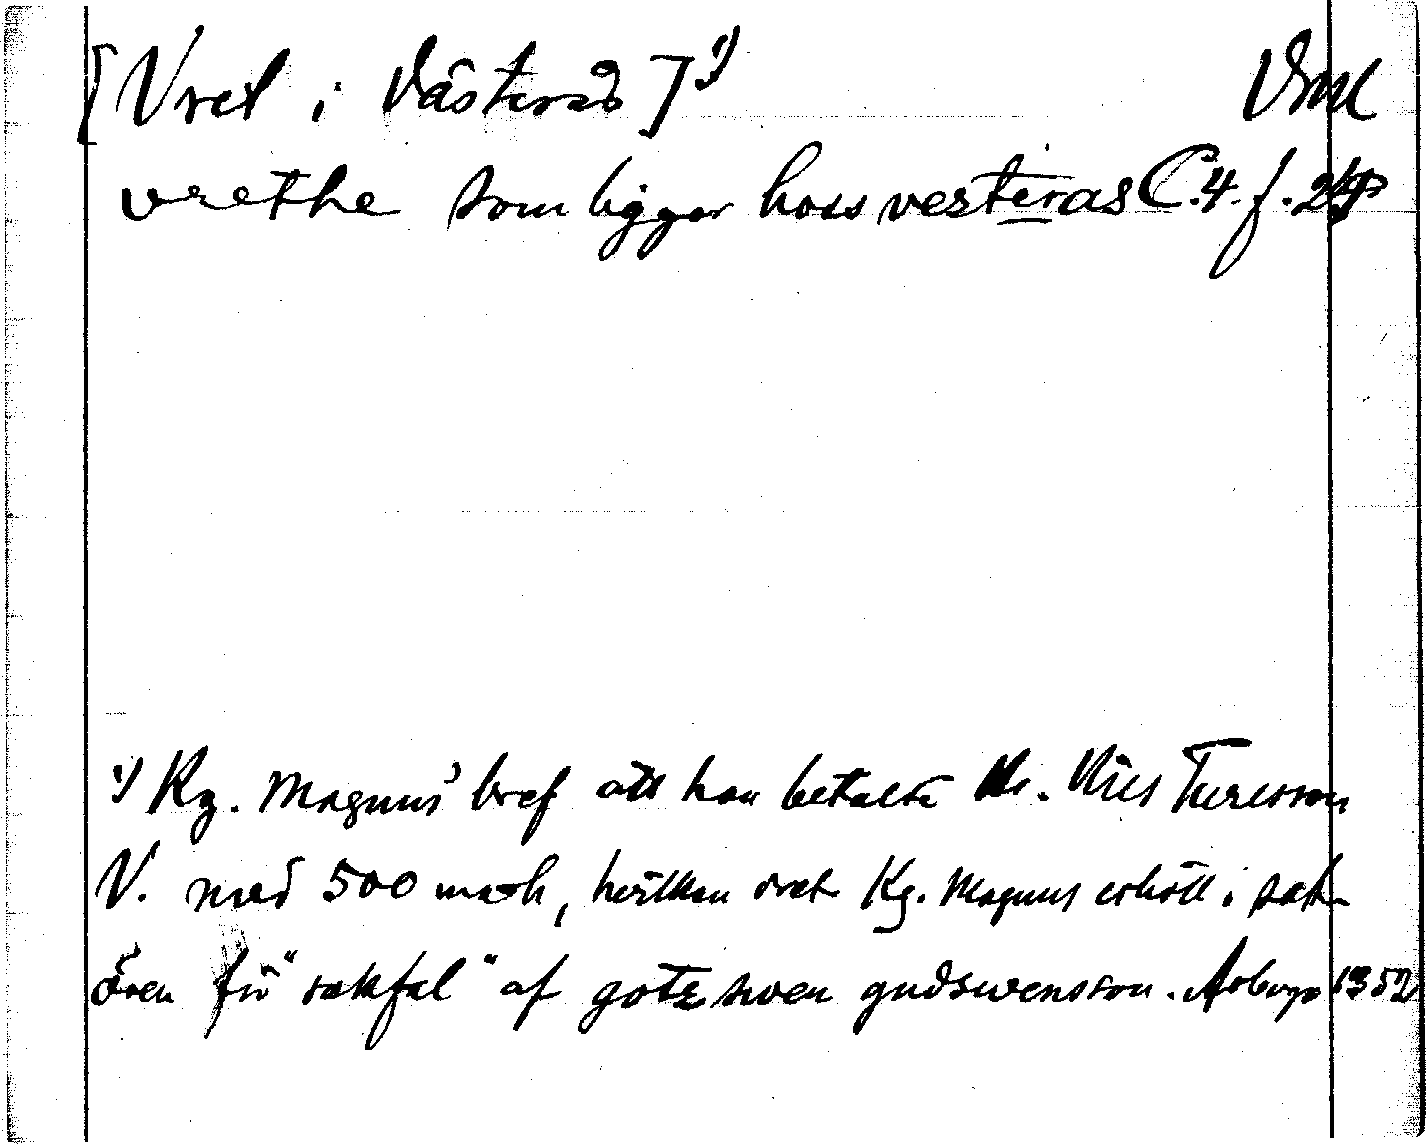 [Vret i Västerås] 1) Vml
vrethe som ligger hoss vesteras C.4. f. 24
1) Kg. Magnus' bref att han betalt Hr. Nils Turesson
V. med 500 mark, hvilken vret Kg. Magnus erhöll i sak-
ören för "sakfal" af gotz swen gudswensson. Arboga 1352